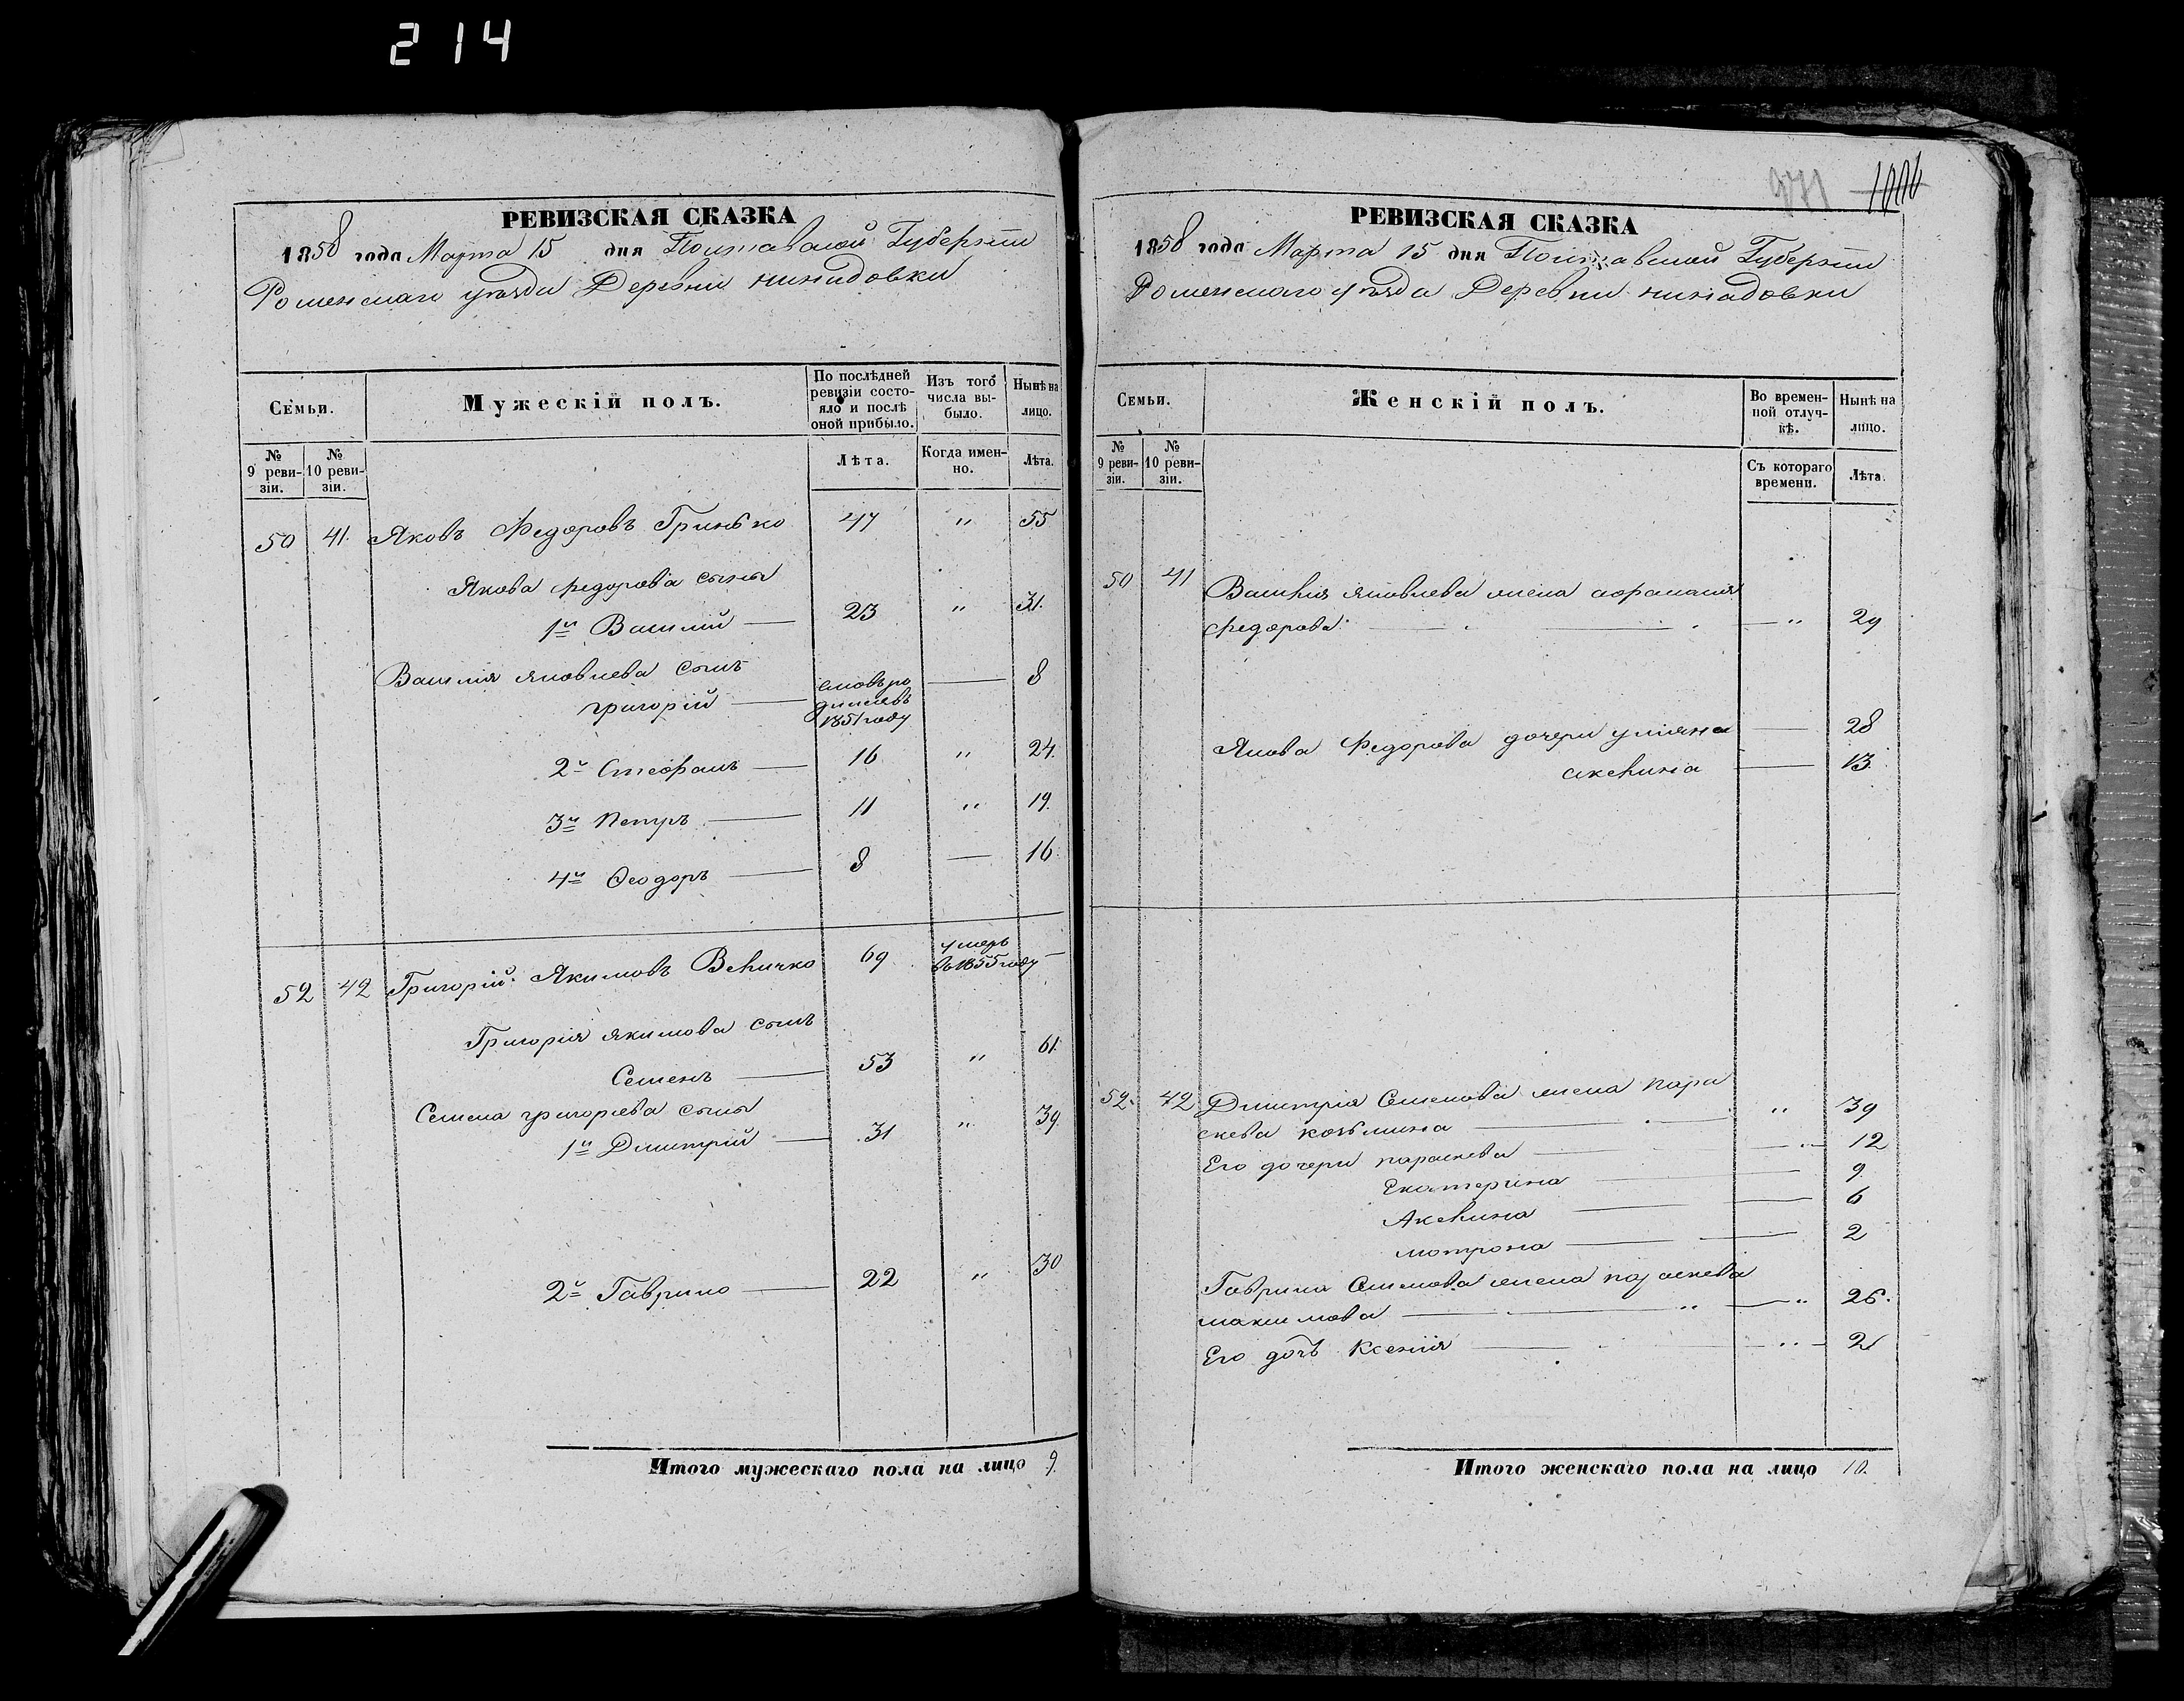 214
РЕВИЗСКАЯ СКАЗКА
1858 года Марта 15 дня Полтавской Губернiи
Роменскаго уѣзда Деревни
Семьи.
Мужескiй полъ.
По послѣдней ревизiи состо-
яло и послѣ оной прибыло.
Изъ того числа вы-
было.
Нынѣ на лицо.
№ 9 реви-
зiи.
№ 10 реви-
зiи.
Лѣта.
Когда имен-
но.
Лѣта.
50 41. Яковъ Федоровъ Гринько 47 " 55
Якова федорова сыны
1й Василiй — 23 " 31.
Василiя яковлева сынъ
григорiй — 8
1851 году
2й Стефанъ — 16 " 24.
3й Петръ — 11 " 19.
4й Ѳеодоръ — 8 — 16.
52 42 Григорiй Якимовъ Величко 69 умеръ
въ 1855 году —
Григорiя якимова сынъ
Семенъ — 53 " 61.
Семена григорьева сыны
1й Дмитрiй — 31 " 39.
2й Гаврило — 22 " 30
Итого мужескаго пола на лицо 9.
1006
РЕВИЗСКАЯ СКАЗКА
1858 года Марта 15 дня Полтавской Губернiи
Роменскаго уѣзда Деревни
Семьи.
Женскiй полъ.
Во времен-
ной отлуч-
кѣ.
Нынѣ на лицо.
№ 9 реви-
зiи.
№ 10 реви-
зiи.
Съ котораго времени.
Лѣта.
50 41 Василiя яковлева жена
федорова — " 29
Якова Федорова дочери улiяна — 28
аксенiя — 13.
52. 42 Дмитрiя Семенова жена пара
скева козьмина — " 39
Его дочери параскева — " — 12
Екатерина — 9
— 6
мотрона — 2
Гаврила Семенова жена параскева
максимова — " — " 26.
Его дочь Ксенiя — " — 2
Итого женскаго пола на лицо 10.